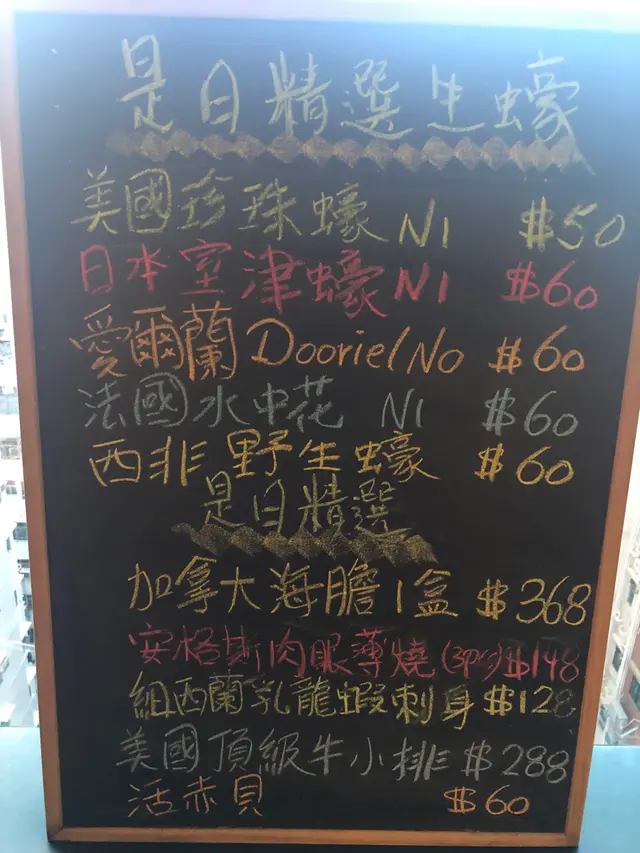 是日精選生蠔
美國珍珠蠔 N1 $50
日本室津蠔 N1 $60
愛爾蘭 Dooriel No $60
法國水中花 N1 $60
西非野生蠔 $60
是日精選
加拿大海膽1盒 $368
安格斯肉眼薄燒(3pcs)$148
紐西蘭乳龍蝦刺身 $128
美國頂級牛小排 $288
活赤貝 $60